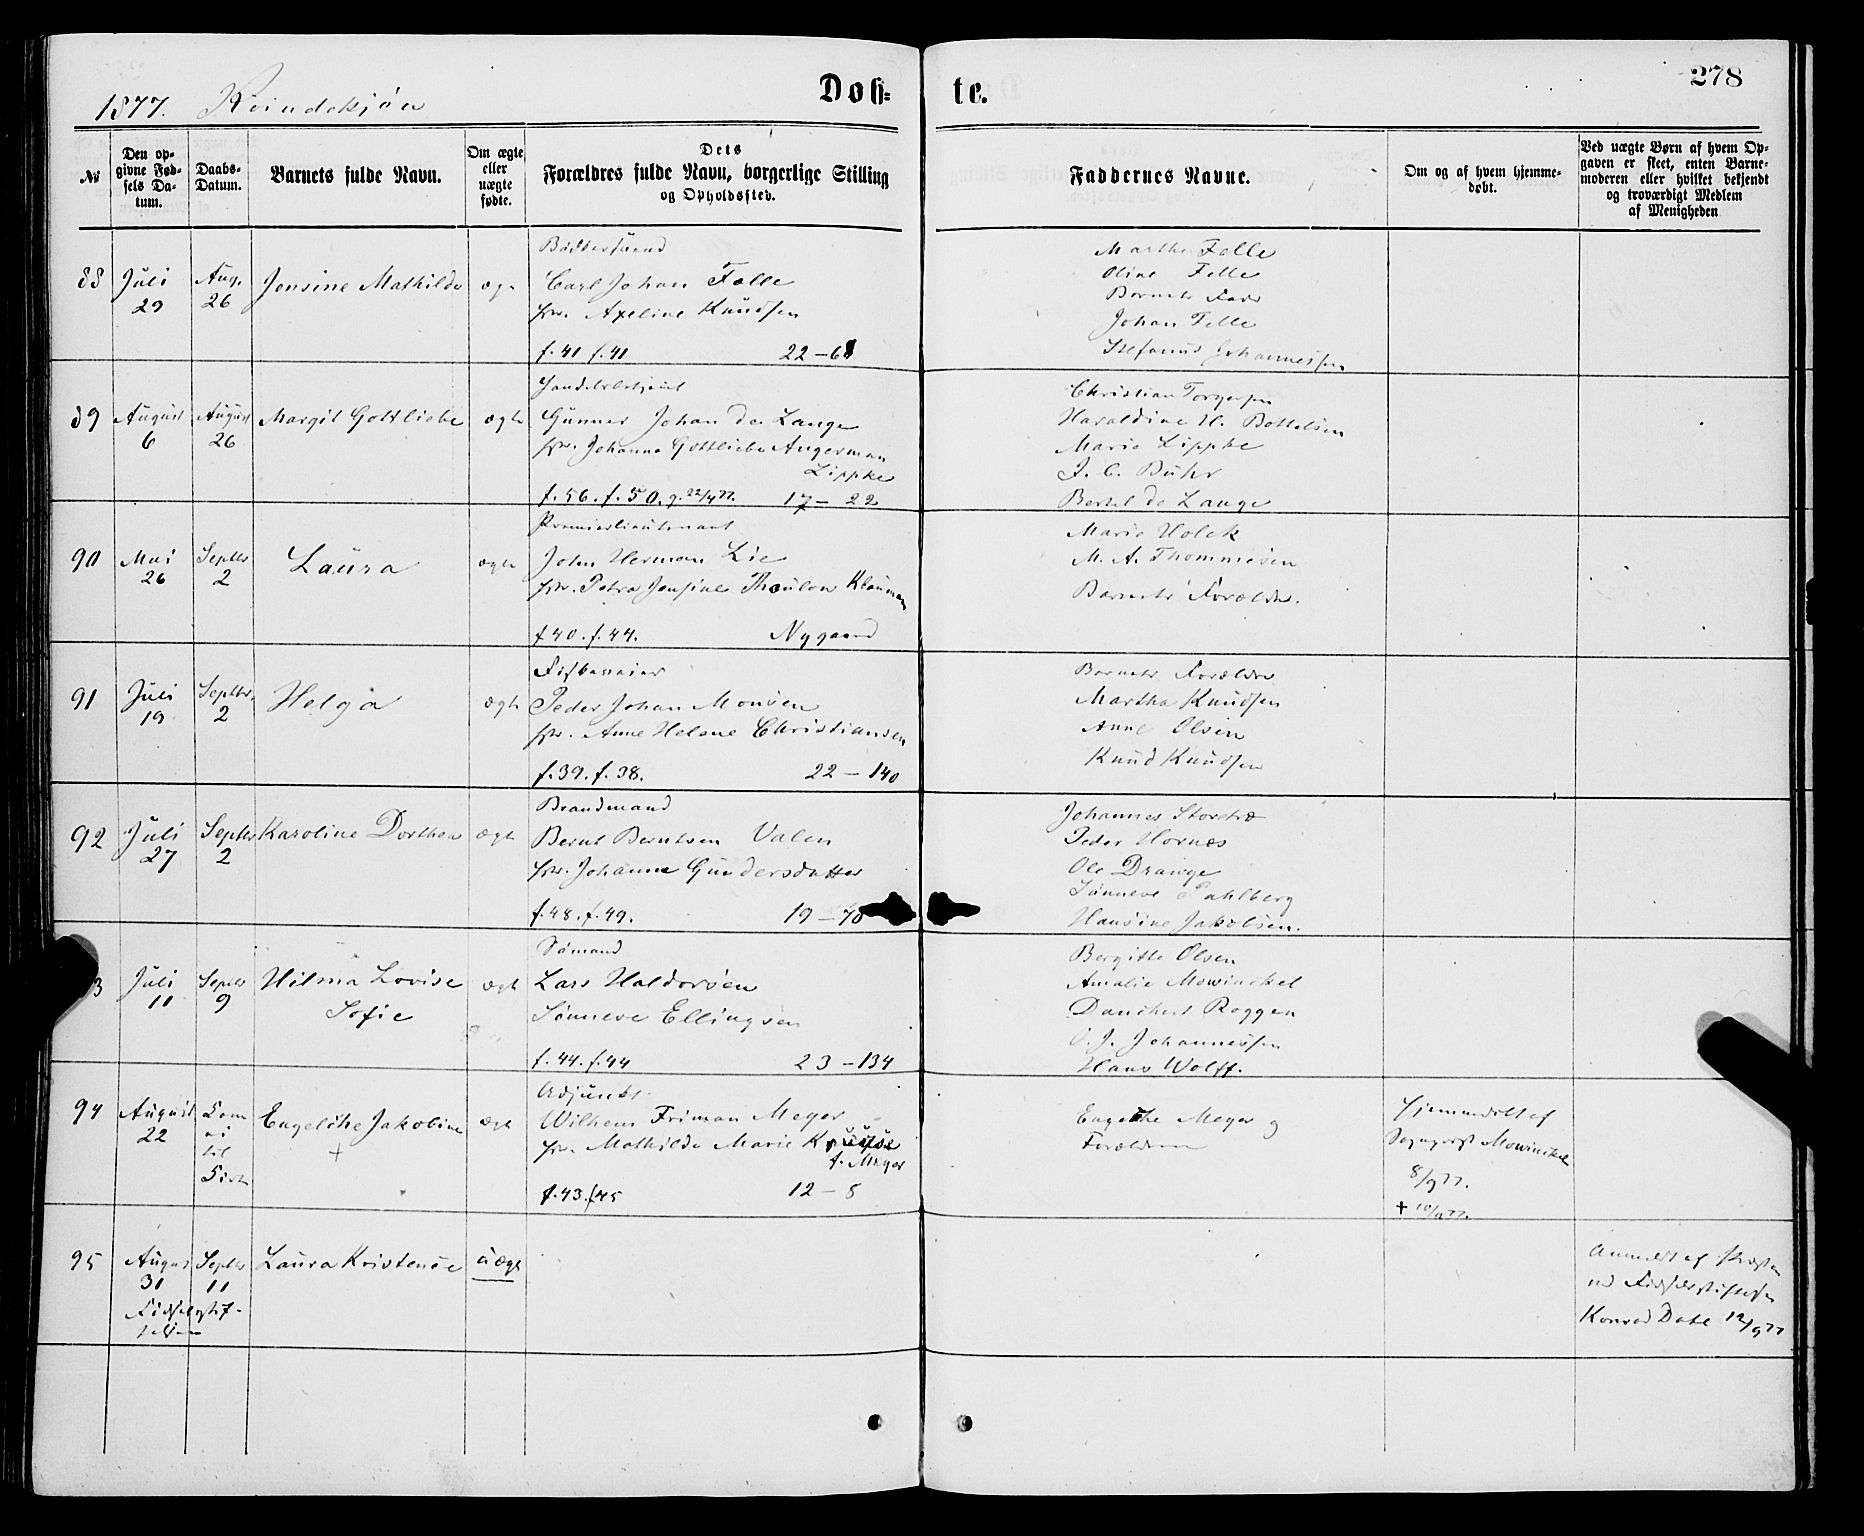 278
1877. Kvindekjøn
Døb-
te.
№
Den op-
givne Fød-
sels Da-
tum.
Daabs-
Datum.
Barnets fulde Navn.
Om ægte
eller
uægte
fødte.
Dets
Forældres fulde Navn, borgerlige Stilling
og Opholdssted.
Faddernes Navne.
Om og af hvem hjemme-
døbt.
Ved uægte Børn af hvem Op-
gaven er skeet, enten Barne-
moderen eller hvilket bekjendt
og troværdigt Medlem
af Menigheden
88
Juli
29
Aug.
26
Jensine Mathilde
ægte
Bødkersvend
Carl Johan Falle
Axeline Knudsen
f. 41 f. 41
22 –
Marthe Falle
Oline Falle
Barnets Fader
Johan Falle
Johannessen
89
August
6
August
26
Margit Gottliebe
ægte
Gunner Johan de Lange
Johanne Gottliebe Angerman
Lippke
f. 56. f. 50. g. 22/4 77.
17 – 22
Christian Torgersen
Haraldine H. Bottelsen
Marie Lippke
J. C. Buhr
Bertel de Lange
90
Mai
26
Septbr
2
Laura
ægte
Premierlieutenant
John Herman Lie
Petra Jensine Thaulow Klauman
f 40. f. 44.
Nygaard
Marie Holck
M. A. Thommesen
Barnets Forældre.
91
Juli
19
Septbr.
2
Helga
ægte
Peder Johan Monsen
Anne Helene Christiansen
f. 39. f. 38.
22 – 140
Barnets Forældre
Martha Knudsen
Anne Olsen
Knud Knudsen
92
Juli
27
Septbr
2
Karoline Dorthea
ægte
Brandmand
Bernt Berntsen Valen
Johanne Gundersdatter
f. 48. f. 49.
19 – 70
Johannes
Peder Hornes
Ole Drange
Sønneve Dahlberg
Hansine Jakobsen.
3
Juli
11
Septbr
9
Hilma Lovise
Sofie
ægte
Sømand
Lars Haldorsen
Sønneve Ellingsen
f. 44. f. 44
23 – 134
Bergitte Olsen
Amalie Mowinckel
Danckert Roggen
O. J. Johannessen
Hans Wolff.
94
August
22
Kom
ei
til
Kirke
Engelche Jakobine
+
ægte
Adjunkt
Wilhem Friman Meyer
Mathilde Marie Kruse
f. Meyer
f. 43. f 45
12 – 8
Engelche Meyer og
Forældrene
Hjemmedøbt af
Sogneprst Mowinckel
8/9 77.
+ 10/9 77.
95
August
31
Septbr
11
Fødselsstif-
telsen
Laura Kristense
uægte
Anmeldt af Præsten
ved Fødselsstiftelsen
Konrad Dahl 12/9 77